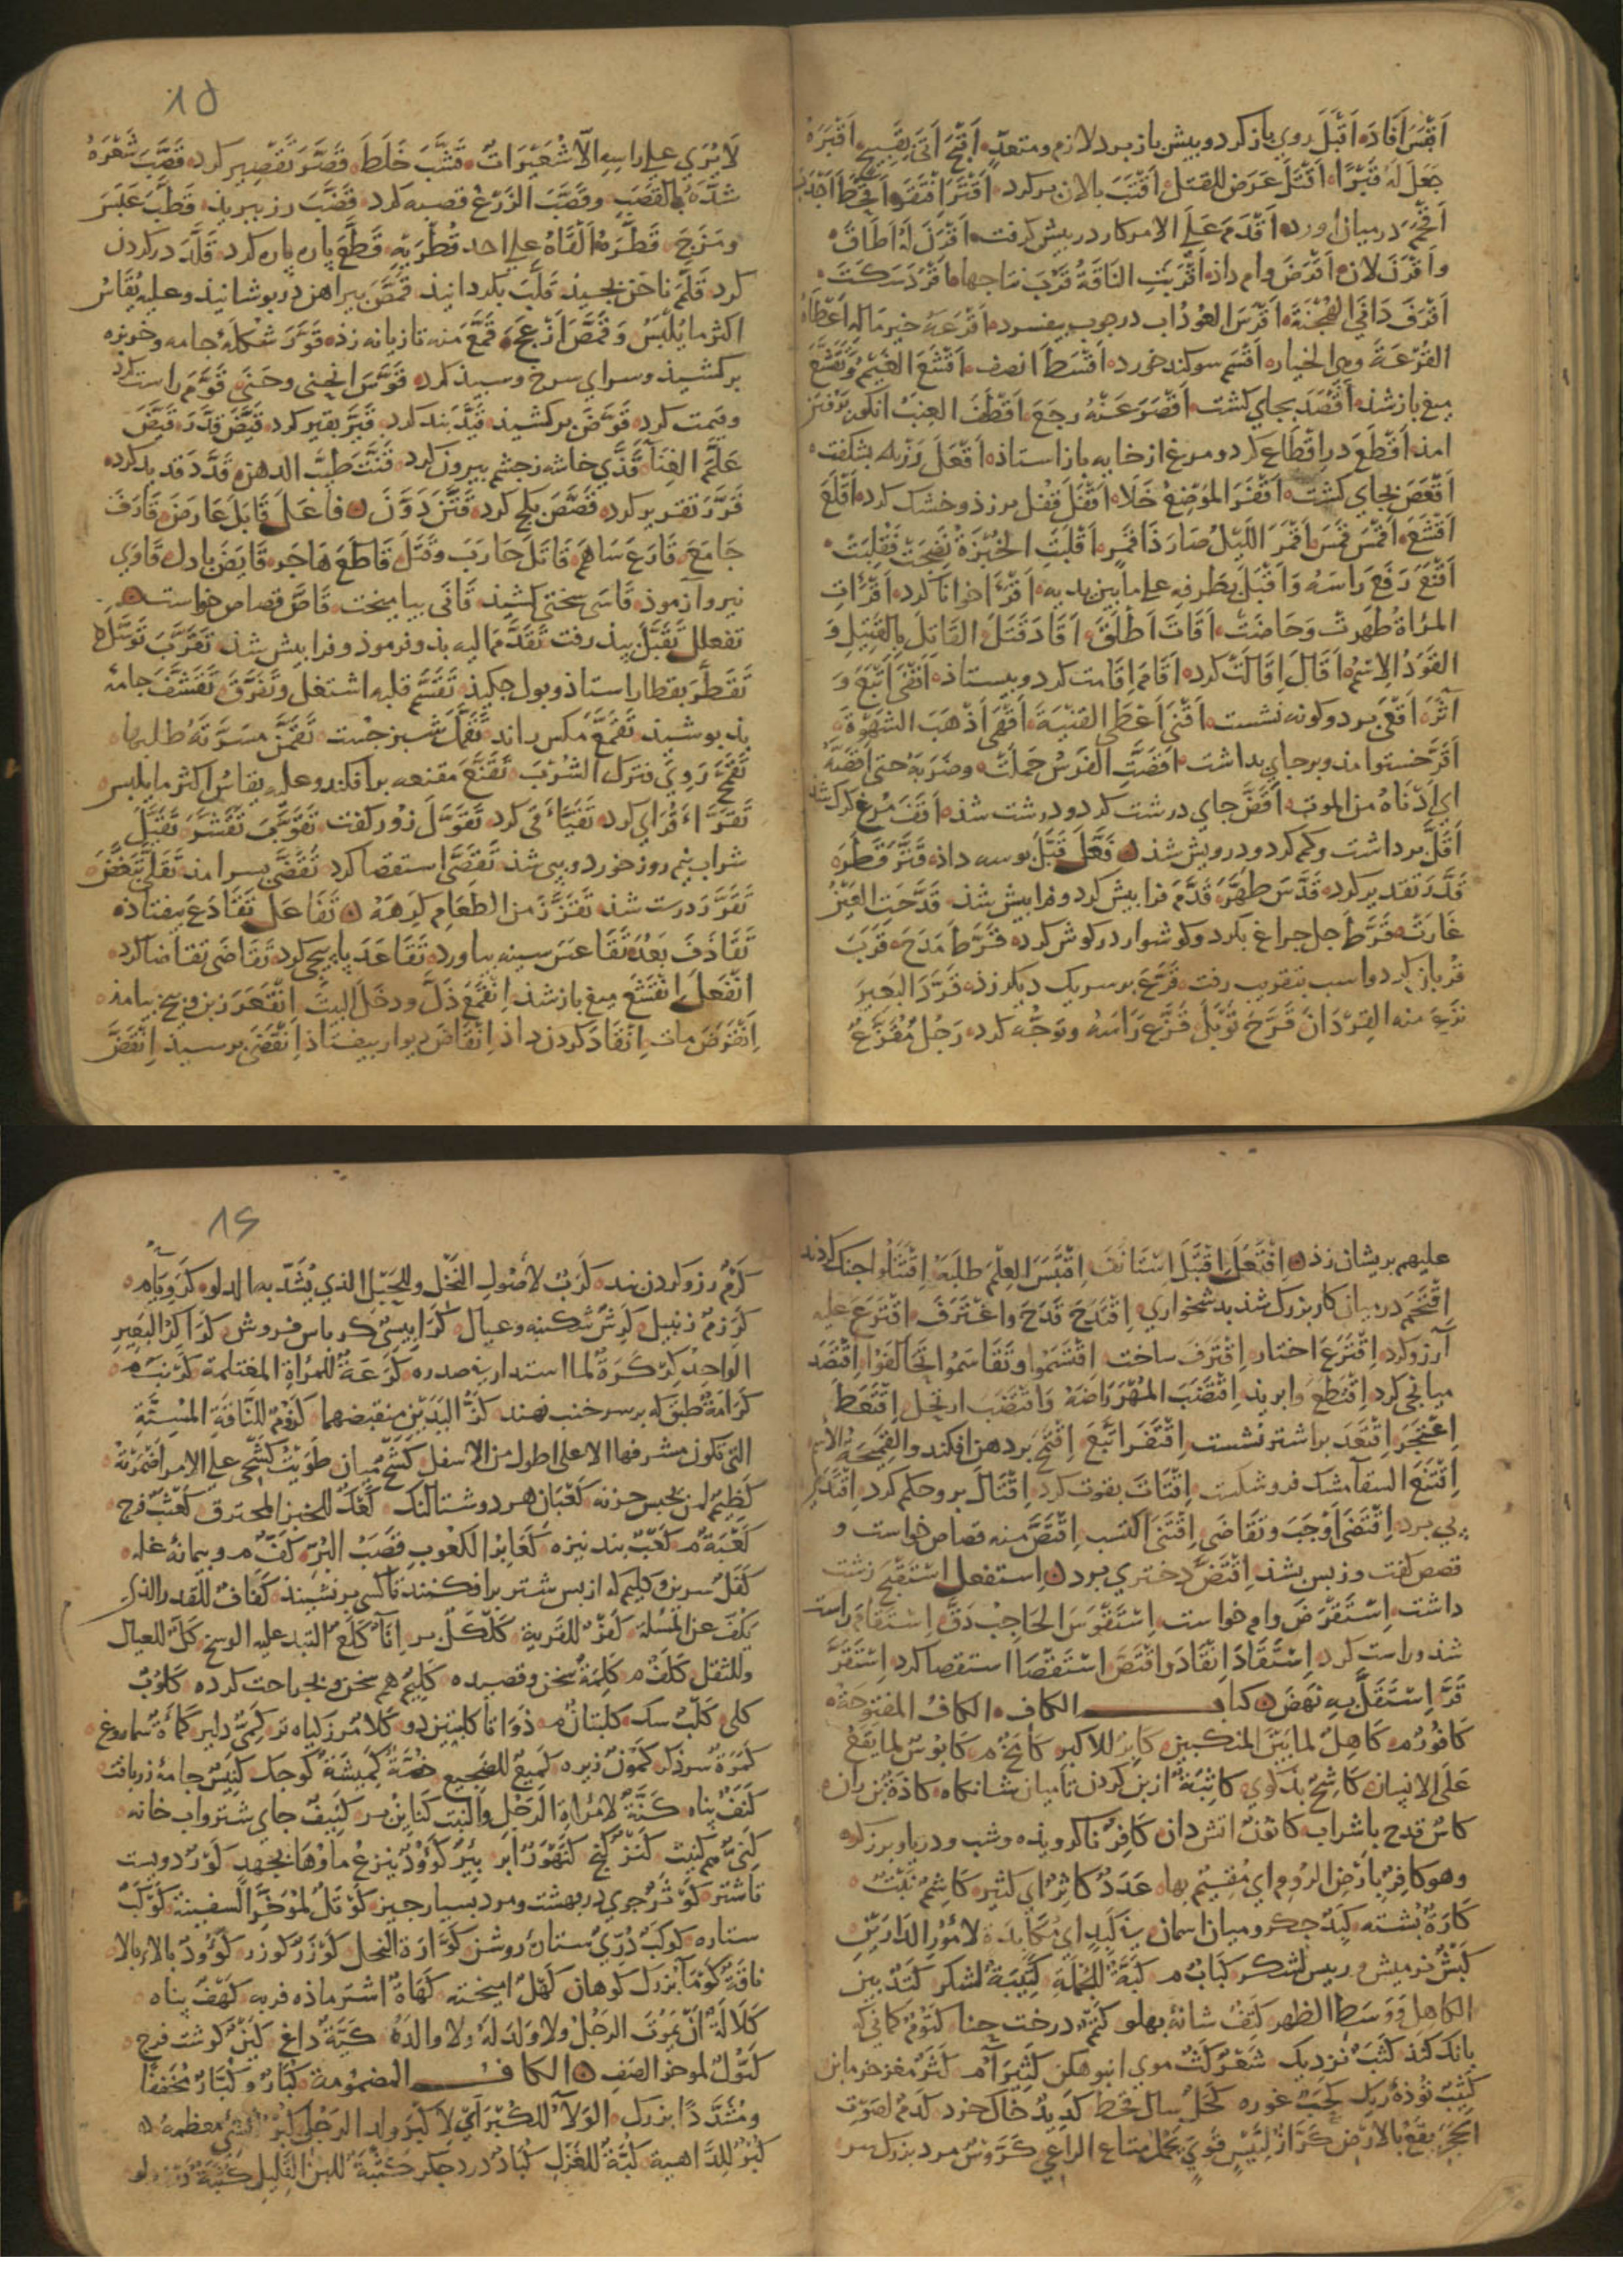 اَقْبَسَ اَفَادَه اَقْبَلَ روي باز كرد و بيش باز برد لازم ومتعدٍّ اَقْبَحَ اَتَى بِقَبِيحٍ اَقْبَرَهُ
جَعَلَ لَهُ قَبْرًا اَقْتَلَ عَرَضَ للقتل اَقْتَبَ بالان بر كرد اَقْتَرَ اِفْتَقَرَ اَقْحَطَ اَجْدَبَ
اَقْحَمَ در ميان اورد اَقْدَمَ عَلَى الامر كار در بيش كرفت اَقْزَلَ لَهُ اَطَاقَ
واَقْرَنَ لان اَقْرَضَ وام داذ اَقْرَبَتِ النَاقَةُ قَرُبَ نتاجها اَقْرَدَ سَكَتَ
اَقْرَفَ دَانَى الهُجْنَةَ اَقْرَسَ العُودُ اب در جوب بيفسرد اَقْرَعَهُ خير مَالِهِ اَعْطَاهُ
القُرْعَةَ وهي الخيار اَقْسَم سوكند خورد اَقْسَطَ انصف اَقْشَعَ الغَيْمُ وتَقَشَّعَ
ميغ باز شذ اَقْصَدَ بجاي كشت اَقْصَرَ عَنْهُ رجَعَ اَقْطَفَ العِنَبُ انكور
امذ اَقْطَعَ در اِقْطَاع كرد و مرغ از خايه باز استاذ اَقْعَلَ بشكفت
اَقْعَصَ بجاي كشت اَقْفَرَ المَوْضِعُ خَلَا اَقْفَلَ قفل بر زذ و خشك كرد اَقْلَعَ
اَقْشَعَ اَقْمَسَ قَمَسَ اَقْمَرَ اللَيْلُ صَارَ ذَا قَمَرٍ اَقْلَبَتِ الخُبْزَةُ نَضِجَتْ فَقُلِبَتْ
اَقْنَعَ رَفَعَ رَاسَهُ وَاَقْبَلَ بِطَرفِهِ على مابين يديه اَقْرَأَ خوانا كرد اَقْرَأتِ
المرْاَة طَهرتْ وَحَاضَتْ اَقَاتَ اَطْلَقَ اَقَادَ قَتَلَ القَاتِلَ بِالقَتِيلِ وَ
القَوَدُ الاِسْمُ اَقَالَ اِقَالَتْ كرد اَقَامَ اِقَامت كرد و بيستاذ اَقْفَى اَتْبَعَ وَ
آثَرَ اَقْعَى بر دو كونه نشست اَقْنَى اَعْطَى القِنْيَةَ اَقْهَى اَذْهَبَ الشَهْوَةَ
اَقَرَّ خستو امذ و بر جاي بداشت اَقَصَّتِ الفَرَسُ حَمَلَتْ وضَرَبَهُ حتى اَقَصَّهُ
اي اَدْنَاهُ من الموت اَقَضَّ جاي درشت كرد و درشت شذ اَقَفَّ مرغ كرك شذ
اَقَلَّ برداشت وكم كرد و درويش شذ فَعَّلَ قَبَّلَ بوسه داذ قَتَّرَ قَطَرَ
قَدَّرَ تقدير كرد قَدَّسَ طهَّرَ قَدَّمَ فرا بيش كرد و فرا بيش شذ قَدَّحَتِ العَيْنُ
غَارَتْ قَرَّطَ جل جراغ بكرد و كوشوار در كوش كرد قَرَّظَ مَدَحَ قَرَّبَ
قربان كرد واسب بتقريب رفت قَرَّعَ بر سر يك ديكر زذ قَرَّدَ البَعِيرَ
نزَعَ منه القِرْدَانَ قَزَّحَ تَوْبَلَ قَزَّعَ رَاسَهُ وتوَجَّه كرد رَجُل مُقَزَّعٌ
١٥
لَا يُرَي على راسِهِ اِلّا شُعَيْرَاتٌ قَشَّبَ خَلَطَ قَصَّرَ تَقْصِير كرد قَصَّبَ شَعْرَهُ
شدَّهُ بالقصَبِ وقَصَّبَ الزَرْعُ قصبه كرد قَضَّبَ رز ببريذ قَطَّبَ عَبَسَ
ومَزَجَ قَطَّرَهُ اَلْقَاهُ على احد قُطْرَيْهِ قَطَّعَ پاره پاره كرد قَلَّدَ در كردن
كرد قَلَّمَ ناخن بجيذ قَلَّبَ بكردانيذ قَمَّصَ بيراهن در بوشانيذ وعليه يُقَاسُ
اكثر مايُلْبَسُ وَقَمَّصَ اَزْعَجَ قَمَّعَ منه تازيانه زذ قَوَّرَ شَكْلَهُ جامه و خربزه
بر كشيذ و سراي سرخ و سبيذ كرد قَوَّسَ انحنى وحَنَى قَوَّمَ راست كرد
وقيمت كرد قَوَّضَ بر كشيذ قَيَّدَ بند كرد قَيَّرَ بقير كرد قَيَّضَ قَدَّرَ قَيَّضَ
عَلَّمَ الغِنَآ قَذَّي خاشه ز جشم بيرون كرد قَنَّتَ طيَّبَ الدهن قدَّدَ قديد كرد
قَرَّرَ تقرير كرد قَصَّصَ بكج كرد قَنَّنَ دَوَّنَ فاعَلَ قَابَلَ عَارضَ قَارَفَ
جَامَعَ قَارَعَ سَاهمَ قَاتَلَ حَارَبَ وقَتَلَ قَاطَعَ هَاجَرَ قَايَضَ بادل قَاوَي
نيرو آزموذ قَاسَى سختي كشيذ قَانَى بياميخت قَاصَّ قصاص خواست
تفعلل تَقَبَّلَ بيذ رفت تَقَدَّمَ فرموذ و فرا بيش شذ تَقَرَّبَ تَوَسَّلَ
تَقَطَّرَ بقطار استاذ وبول جكيذ تَقَسَّمَ قلبه اشتغل وتَفَرَّقَ تَقَشَّفَ جامۀ
بذ بوشيذ تَقَمَّعَ مكس راند تَقَمَّلَ شبز جست تَقَمَّنَ مَسَرَّتَهُ طلبها
تَقَمَّحَ رَوِيَ فترك الشُرْبَ تَقَنَّعَ مقنعه بر افكند وعليه يقاسُ اكثر مايلبس
تَقَرَّأَ قُرَاي كرد تَقَيَّأَ قى كرد تَقَوَّلَ زور كفت تَقَوَّبَ تَقَشَّرَ تَقَيَّلَ
شراب نيم روز خورد و بى شذ تَقَصَّى استقصا كرد تَقَضَّى بسر امذ تَقَلَّى تَبَغَّضَ
تَقَرَّرَ درست شذ تَقَزَّزَ من الطعَامِ كَرِهَهُ تَفَاعَلَ تَقَادَعَ بيفتاذ
تَقَاذَفَ بَعُدَ تَقَاعَسَ سينه بياورد تَقَاعَدَ پاربيجى كرد تَقَاضَى تقاضا كرد
انفَعَلَ اِنْقَشَعَ ميغ باز شذ اِنْقَمَعَ ذَلَّ ودخل البيت اِنْقَعَرَ زبن وبيخ بيامذ
اِنْقَرَضَ مات اِنْقَادَ كردن داذ اِنْقَاضَ ديوار بيفتاذ اِنْقَضَى برسيذ اِنْقَضَّ
عليهم بريشان زذ اِفْتَعَلَ اِقْتَبَلَ اِسْتَانَفَ اِقْتَبَسَ العِلْمَ طلَبَهُ اِقْتَتَلُوا جنك كردند
اِقْتَحَمَ در ميان كار بزرك شذ بدشخواري اِقْتَدَحَ قَدَحَ واغْتَرَفَ اِقْتَرَعَ عليه
آرزو كرد اِقْتَرَعَ اختار اِقْتَرَفَ ساخت اِقْتَسَمُوا وتَقَاسَمُوا تَحَالَفُوا اِقْتَصَدَ
ميانجى كرد اِقْتَطَعَ وابريذ اِقْتَضَبَ المُهْرَ رَاضَهُ وَاقْتَضَبَ ارتجل اِقْتَعَطَ
اِعْتَجَرَ اِقْتَعَدَ بر اشتر نشست اِقْتَفَرَ اتَّبَعَ اِقْتَمَحَ بر دهن افكند والقَمِيحَةُ الاسم
اِقْتَبَعَ السقآ مشك فرو شكست اِقْتَاتَ بقوت كرد اِقْتَالَ برو حكم كرد اِقْتَدَى
پى برد اِقْتَضَى اَوجَبَ وتَقَاضَى اِقْتَنَى اكتسب اِقْتَصَّ منه قصاص خواست و
قصص كفت و ز بس بشذ اِقْتَضَّ دختري ببرد اِستفعل اِسْتَقْبَحَ زشت
داشت اِسْتَقْرَضَ وام خواست اِسْتَقْوَسَ الحَاجِبُ دَقَّ اِسْتَقَامَ راست
شذ وراست كرد اِسْتَقَادَ اِنْقَادَ واقْتَصَّ اسْتَقْصَا استقصا كرد اِسْتَقَرَّ
قَرَّ اِسْتَقَلَّ بِهِ نَهَضَ كتاب الكاف الكافُ المفتوحَة
كَافُورٌ م كَاهِلٌ لمابَيْنَ المنكبين كَابِرٌ للاكبر كَامَخٌ م كَابُوْسٌ لما يَقعُ
عَلَى الانسان كَاشِحٌ بذ كوي كَاثِبَةٌ از بن كردن تا ميان شانكاه كَاذَةٌ بن ران
كَاسٌ قدح باشراب كَانُونٌ اتش دان كَافِرٌ ناكرويذه وشب ودريا و برزكر
وهوكَافِرٌ بارْضِ الرُوم اي مُقِيْمٌ بها عَدَدٌ كاثِرٌ اي كَثِير كَاشِمٌ نَبْتٌ
كَارَةٌ بُشته كَبِدٌ جكر و ميان اسمان في كَبَدٍ اي مُكَابَدَةٍ لامُوْرِ الدَارَيْنِ
كَبْشٌ نرميش وريس لشكر كَبَابٌ م كَبَّةٌ للحَمْلَةِ كَتِيبَةٌ لشكر كَتَدٌ بين
الكاهِل ووَسَطِ الظهر كَتِفٌ شانۀ بهلو كَتَمٌ درخت حنا كَتُوْمٌ كمانى كه
بانك نكند كَثَبٌ نزديك شَعْرٌ كَثٌّ موي انبوه كَثِيرَآ م كَثَرٌ مغز خرما بن
كَثِيْبٌ توذۀ ريك كَحَبٌ غوره كَحْلٌ سال قحط كَدِيْدٌ خاك خرد كَدَمٌ لصَوت
الحَجَر يقَعُ بالارْض كَرَّازٌ لتَيْسٍ قَوِيٍّ يَحْمِلُ متاع الراعي كَرَوَّسٌ مرد بزرك سر
١٦
كَرْمٌ رز و كردن بند كَرَبٌ لاُصُولِ النَخْلِ وللحَبْلِ الذي يُشَدُّ به الدلو كَرَوِيَاءُ م
كَرْزَمٌ زنبيل كَرِشٌ شكنبه وعيال كَرَابِيسيّ كرباس فروش كَرَاكِرُ البَعِيرِ
الواحِدُ كِرْكِرَةٌ لما استدار في صدره كَرَعَةٌ للمرْاةِ المغتلمة كَرْنَبٌ م
كَرَامَةٌ طبق كه بر سر خنب نهند كَزُّ اليَدَيْنِ منقبضهما كَزُومٌ للنَاقَةِ المُسِنَّةِ
التي تكون مشرفها الاعلى اطول من الاسفل كَشْحٌ ميان طَوَيْتُ كَشْحِى على الامر اَضْمَرْتُهُ
كَظِيمٌ لمن يحبس حزنه كَعْبَانِ هر دو شتالنك كَعْكٌ للخبز المحترق كَعْثَبٌ فرج
كَعْبَةٌ م كَعْبٌ بند نيزه كَعَابِرُ الكعُوبِ قَصَبُ البُرِّ كَفٌّ م و بيمانۀ غله
كَفَلٌ سرين و كليم كه از بس شتر بر افكنند تا كسى بر نشيند كَفَافٌ للقَدر الذي
يَكُفّ عن المسْلَة كَفْرٌ للقرية كَلْكَلٌ بر اِنَآ كَلِعٌ التَبد عليه الوسخ كَلٌّ للعيال
وللثقل كَلَفٌ م كَلِمَةٌ سخن وقصيده كَلِيمٌ هم سخن و بجراحت كرده كَلُوْبٌ
كلى كَلْبٌ سك كلبتان م ذَوَاتا كلبتين دو كَلَأٌ مرز كياه تر كَمِيٌّ دلير كَمْأَةٌ سماروغ
كَمَرَةٌ سر ذكر كَمُّوْنٌ زيره كَمِيعٌ للضجيع كَمِيْشَةٌ كوجك كَنِيْسٌ جامۀ زربافت
كَنَفٌ پناه كَنَّةٌ لامْرَاةِ الرَجُلِ والبَيت كَنَائِنُ كَنِيفٌ جاي شتر واب خانه
كَنِيٌّ هم كنيت كَنْزٌ كنج كَنَهْوَرٌ ابر بِئْرٌ كَؤُوْدٌ ينزعُ مَاؤهَا بجهد كَوْرٌ دويست
تا شتر كَوْثَرٌ جوي در بهشت ومرد بسيار جيز كَوْثَلٌ لمُؤخَّرِ السفينة كَوْكَبٌ
ستاره كَوكَبٌ دُرِّيٌّ ستارۀ روشن كَوَّارَة النحل كَوْزَرٌ كوزر كَؤُودٌ بالا بر بالا
ناقَةٌ كَوْمَآ بزرك كوهان كَهْلٌ اميخته كَهَاةٌ اشتر ماذه فربه كَهْفٌ بناه
كَلَالَةٌ اَنْ يَمُوْتَ الرَجُلُ ولا ولَدَ لَهُ ولا والدَهُ كَيَّةٌ داغ كَيْنٌ كوشت فرج
كَيُّوْلٌ لموخر الصَفِ الكاف المضمُومة كُبَارٌ وكُبَّارٌ مُخَفَّفًا
ومُشَدَّدًا بزرك الوَلآءُ للكُبْرِ اَي لاكبر ولد الرَجُل كُبْرُ الشَيْ معظمهُ
كُبَرٌ للدَاهية كُبَّةٌ للغَزْل كُبَادٌ درد جكر كُثْبَةٌ للبن القَلِيل